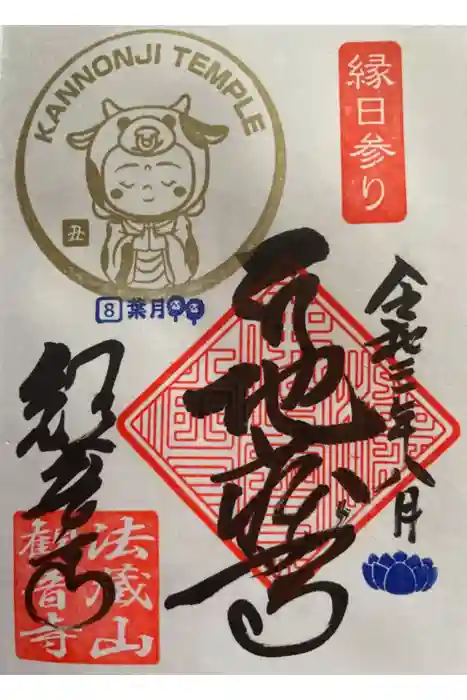 KANNONJI TEMPLE
丑
8 葉月
縁日参り
令和三年八月
地蔵
観音寺
法蔵山
観音寺